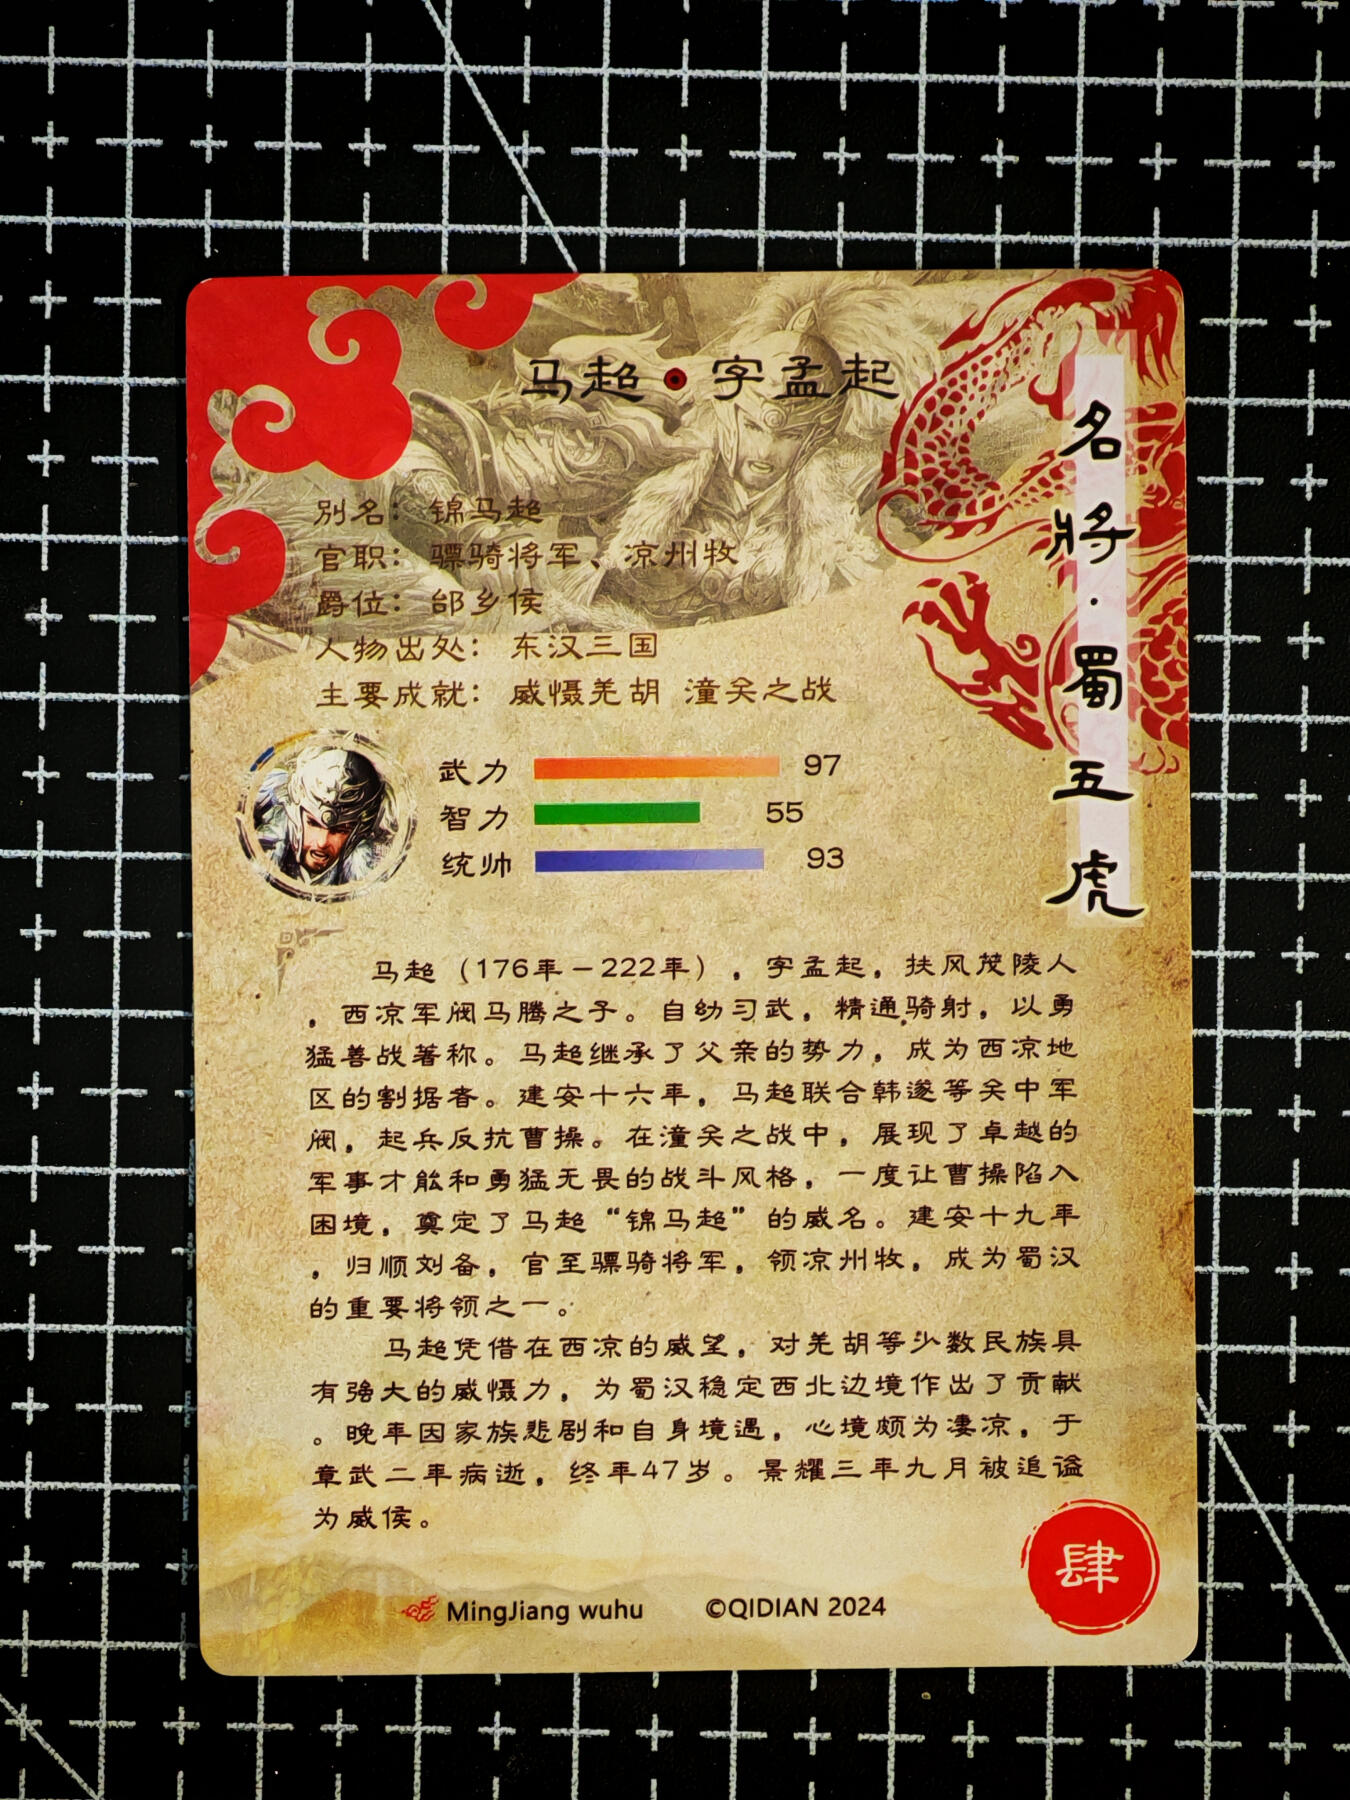 马超·字孟起
名将·蜀五虎
别名：锦马超
官职：骠骑将军、凉州牧
爵位：邰乡侯
人物出处：东汉三国
主要成就：威慑羌胡 潼关之战
武力 97
智力 55
统帅 93
马超（176年－222年），字孟起，扶风茂陵人
，西凉军阀马腾之子。自幼习武，精通骑射，以勇
猛善战著称。马超继承了父亲的势力，成为西凉地
区的割据者。建安十六年，马超联合韩遂等关中军
阀，起兵反抗曹操。在潼关之战中，展现了卓越的
军事才能和勇猛无畏的战斗风格，一度让曹操陷入
困境，奠定了马超“锦马超”的威名。建安十九年
，归顺刘备，官至骠骑将军，领凉州牧，成为蜀汉
的重要将领之一。
马超凭借在西凉的威望，对羌胡等少数民族具
有强大的威慑力，为蜀汉稳定西北边境作出了贡献
。晚年因家族悲剧和自身境遇，心境颇为凄凉，于
章武二年病逝，终年47岁。景耀三年九月被追谥
为威侯。
肆
MingJiang wuhu ©QIDIAN 2024